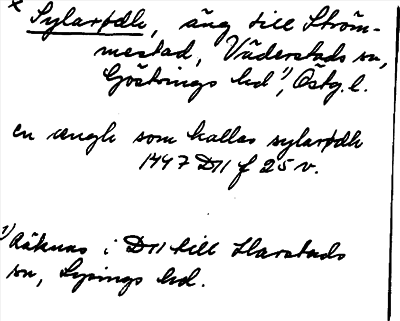 × Sylarödh, äng till Ström-
mestad, Väderstads sn,
Göstrings hd 1), Östg. l.
en ængh som kallas sylarødh
1447 D11 f 25 v.
1) Räknas i D11 till Harstads
sn, Lysings hd.